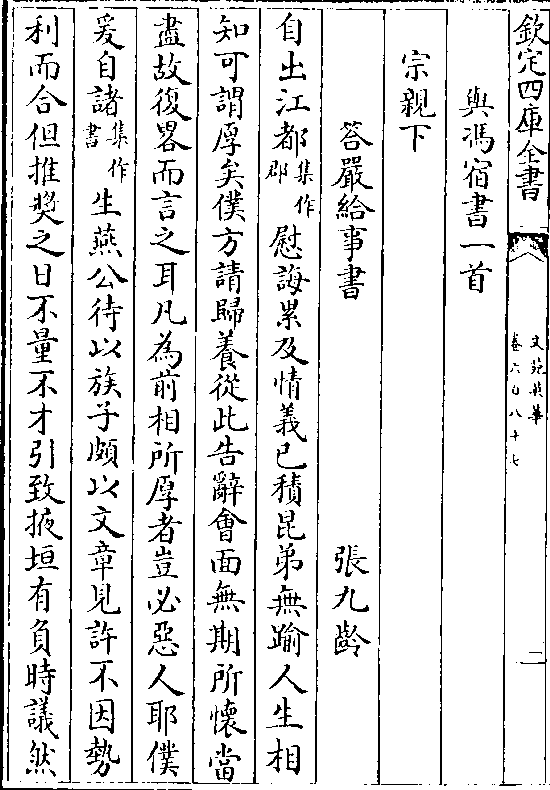 欽定四庫全書
文苑英華
卷六百八十七
二
與馮宿書一首
宗親下
答嚴給事書
張九齡
自出江都集作郡慰誨累及情義已積昆弟無踰人生相
知可謂厚矣僕方請歸養從此告辭會面無期所懷當
盡故復畧而言之耳凡為前相所厚者豈必惡人耶僕
爰自諸集作書生燕公待以族子頗以文章見許不因勢
利而合但推奬之日不量不才引致掖垣有負時議然